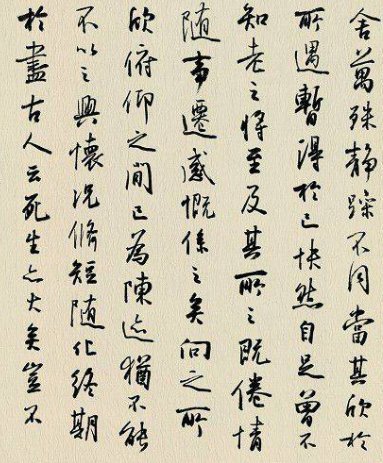 舍萬殊靜躁不同當其欣於
所遇暫得於己怏然自足曾不
知老之將至及其所之既倦情
隨事遷感慨係之矣向之所
欣俯仰之閒已為陳迹猶不能
不以之興懷況脩短隨化終期
於盡古人云死生亦大矣豈不